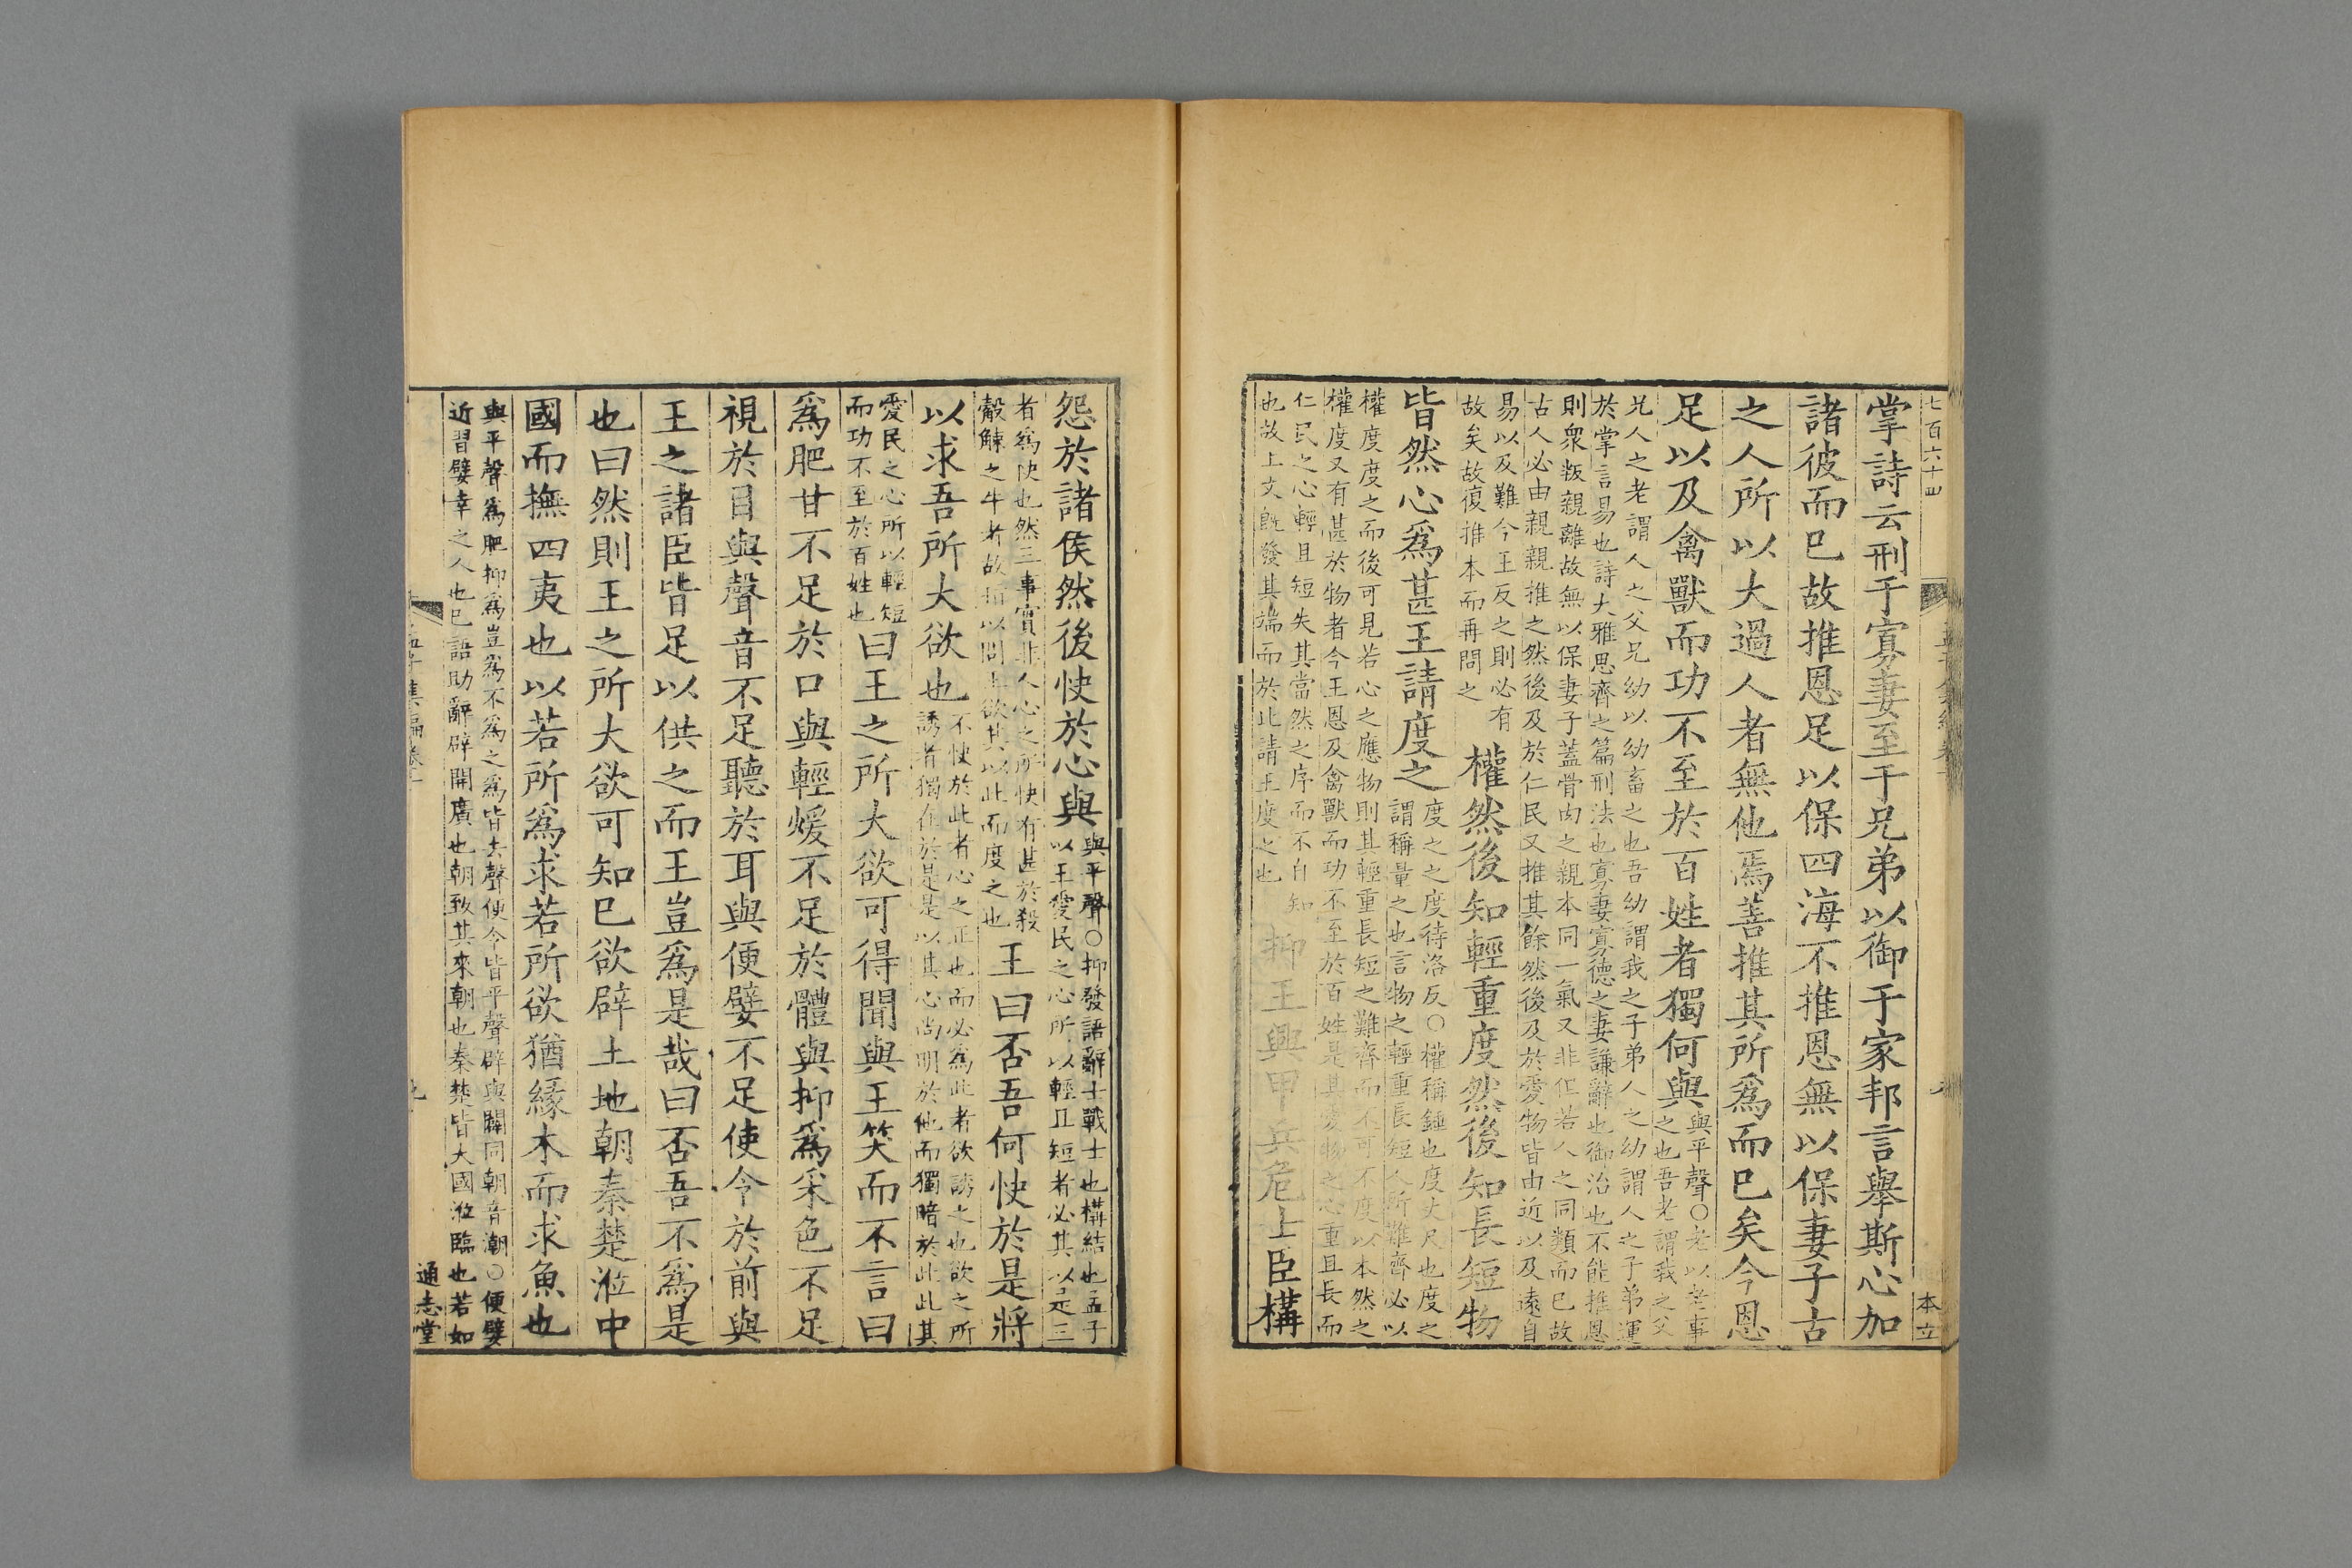 七百六十四
本立
掌詩云刑于寡妻至于兄弟以御于家邦言舉斯心加
諸彼而已故推恩足以保四海不推恩無以保妻子古
之人所以大過人者無他焉善推其所爲而已矣今恩
足以及禽獸而功不至於百姓者獨何與與平聲○老以老事
之也吾老謂我之父
兄人之老謂人之父兄幼以幼畜之也吾幼謂我之子弟人之幼謂人之子弟運
於掌言易也詩大雅思齊之篇刑法也寡妻寡德之妻謙辭也御治也不能推恩
則衆叛親離故無以保妻子蓋骨肉之親本同一氣又非但若人之同類而已故
古人必由親親推之然後及於仁民又推其餘然後及於愛物皆由近以及遠自
易以及難今王反之則必有
故矣故復推本而再問之
權然後知輕重度然後知長短物
皆然心爲甚王請度之度之之度待洛反○權稱錘也度丈尺也度之
謂稱量之也言物之輕重長短人所難齊必以
權度度之而後可見若心之應物則其輕重長短之難齊而不可不度以本然之
權度又有甚於物者今王恩及禽獸而功不至於百姓是其愛物之心重且長而
仁民之心輕且短失其當然之序而不自知
也故上文旣發其端而於此請王度之也
抑王興甲兵危士臣構
怨於諸侯然後快於心與與平聲○抑發語辭士戰士也構結也孟子
以王愛民之心所以輕且短者必其以是三
者爲快也然三事實非人心之所快有甚於殺
觳觫之牛者故指以問王欲其以此而度之也
王曰否吾何快於是將
以求吾所大欲也不快於此者心之正也而必爲此者欲誘之也欲之所
誘者獨在於是是以其心尚明於他而獨暗於此此其
愛民之心所以輕短
而功不至於百姓也
曰王之所大欲可得聞與王笑而不言曰
爲肥甘不足於口與輕煖不足於體與抑爲采色不足
視於目與聲音不足聽於耳與便嬖不足使令於前與
王之諸臣皆足以供之而王豈爲是哉曰否吾不爲是
也曰然則王之所大欲可知已欲辟土地朝秦楚涖中
國而撫四夷也以若所爲求若所欲猶緣木而求魚也
與平聲爲肥抑爲豈爲不爲之爲皆去聲便令皆平聲辟與闢同朝音潮○便嬖
近習嬖幸之人也已語助辭辟開廣也朝致其來朝也秦楚皆大國涖臨也若如
通志堂